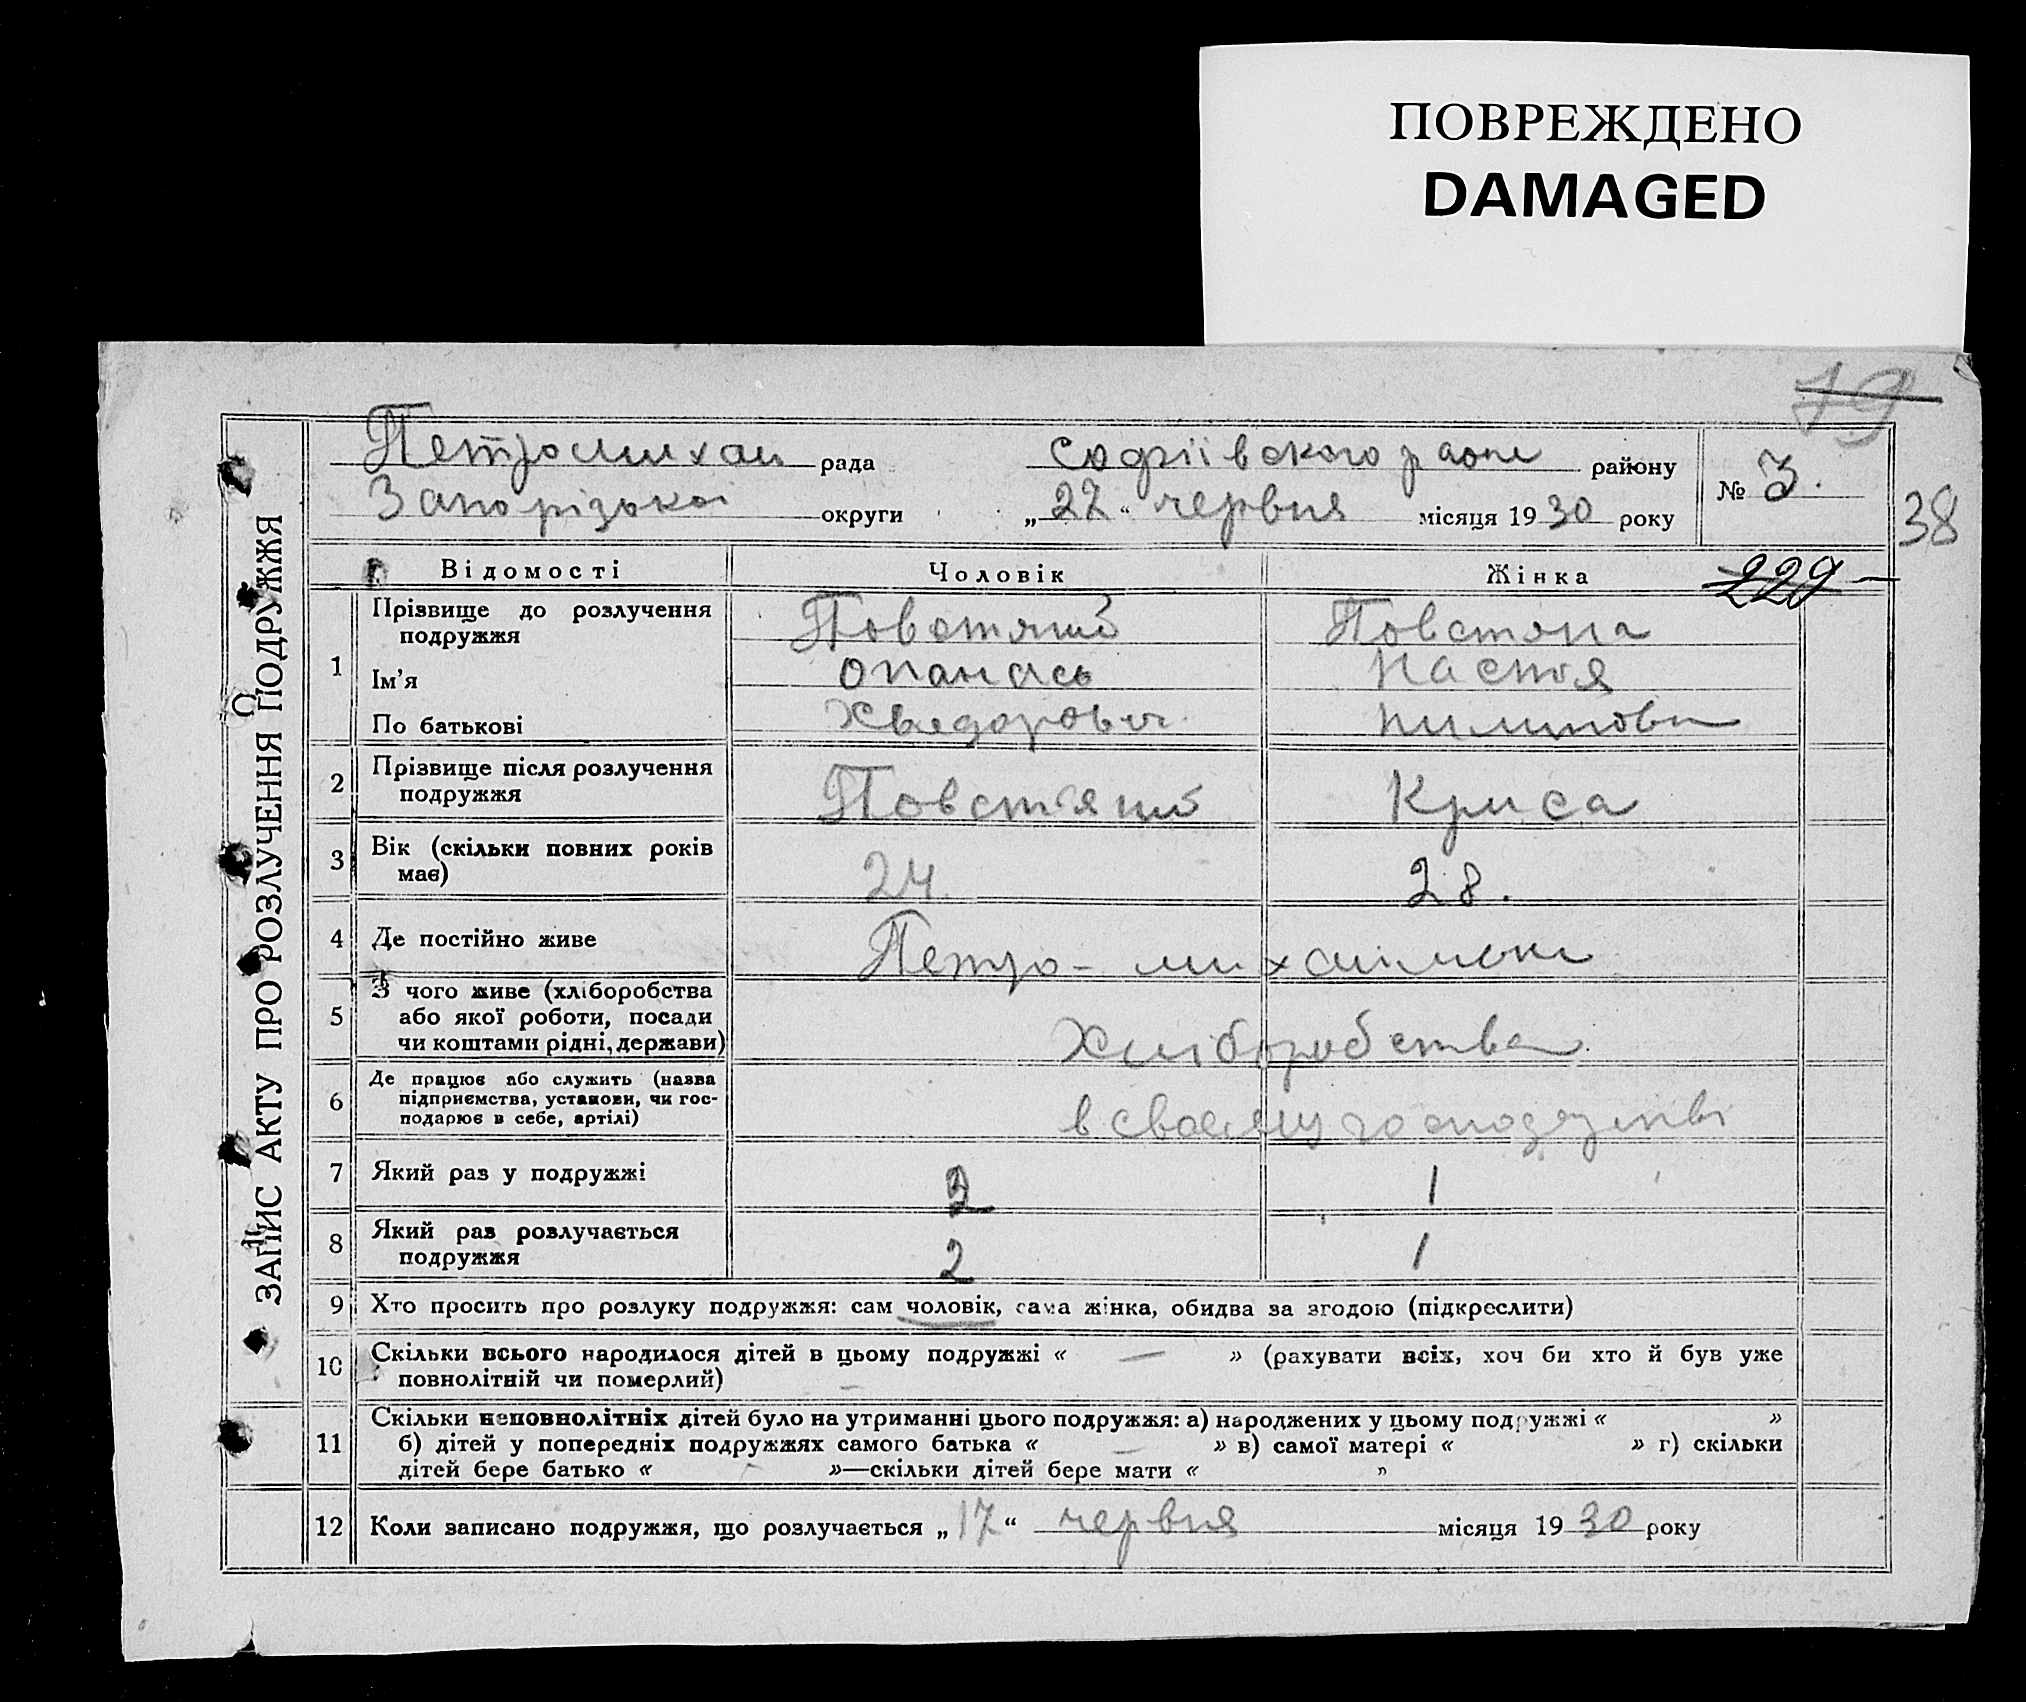 ПОВРЕЖДЕНО
DAMAGED
79
ЗАПИС АКТУ ПРО РОЗЛУЧЕННЯ ПОДРУЖЖЯ
Петромихай рада Софіївского району
Запорізької округи „22“ червня місяця 1930 року
№ 3.
38
Відомості Чоловік Жінка 229
1 Прізвище до розлучення подружжя Повстяний Повстяна
Ім’я Опанась Настя
По батькові Хведорович Пилипова
2 Прізвище після розлучення
подружжя Повстяний Криса
3 Вік (скільки повних років
має) 24. 28.
4 Де постійно живе Петро-михайлівка
5 З чого живе (хліборобства
або якої роботи, посади
чи коштами рідні, держави) Хліборобства
6 Де працює або служить (назва
підприємства, установи, чи гос-
подарює в себе, артілі) в своему господарстві
7 Який раз у подружжі 2 1
8 Який раз розлучається
подружжя 2 1
9 Хто просить про розлуку подружжя: сам чоловік, сама жінка, обидва за згодою (підкреслити)
10 Скільки всього народилося дітей в цьому подружжі « — » (рахувати всіх, хоч би хто й був уже
повнолітній чи померлий) —
11 Скільки неповнолітніх дітей було на утриманні цього подружжя: а) народжених у цьому подружжі « »
б) дітей у попередніх подружжях самого батька « — » в) самої матері « » г) скільки
дітей бере батько « - »—скільки дітей бере мати « »
12 Коли записано подружжя, що розлучається „17“ червня місяця 1930 року